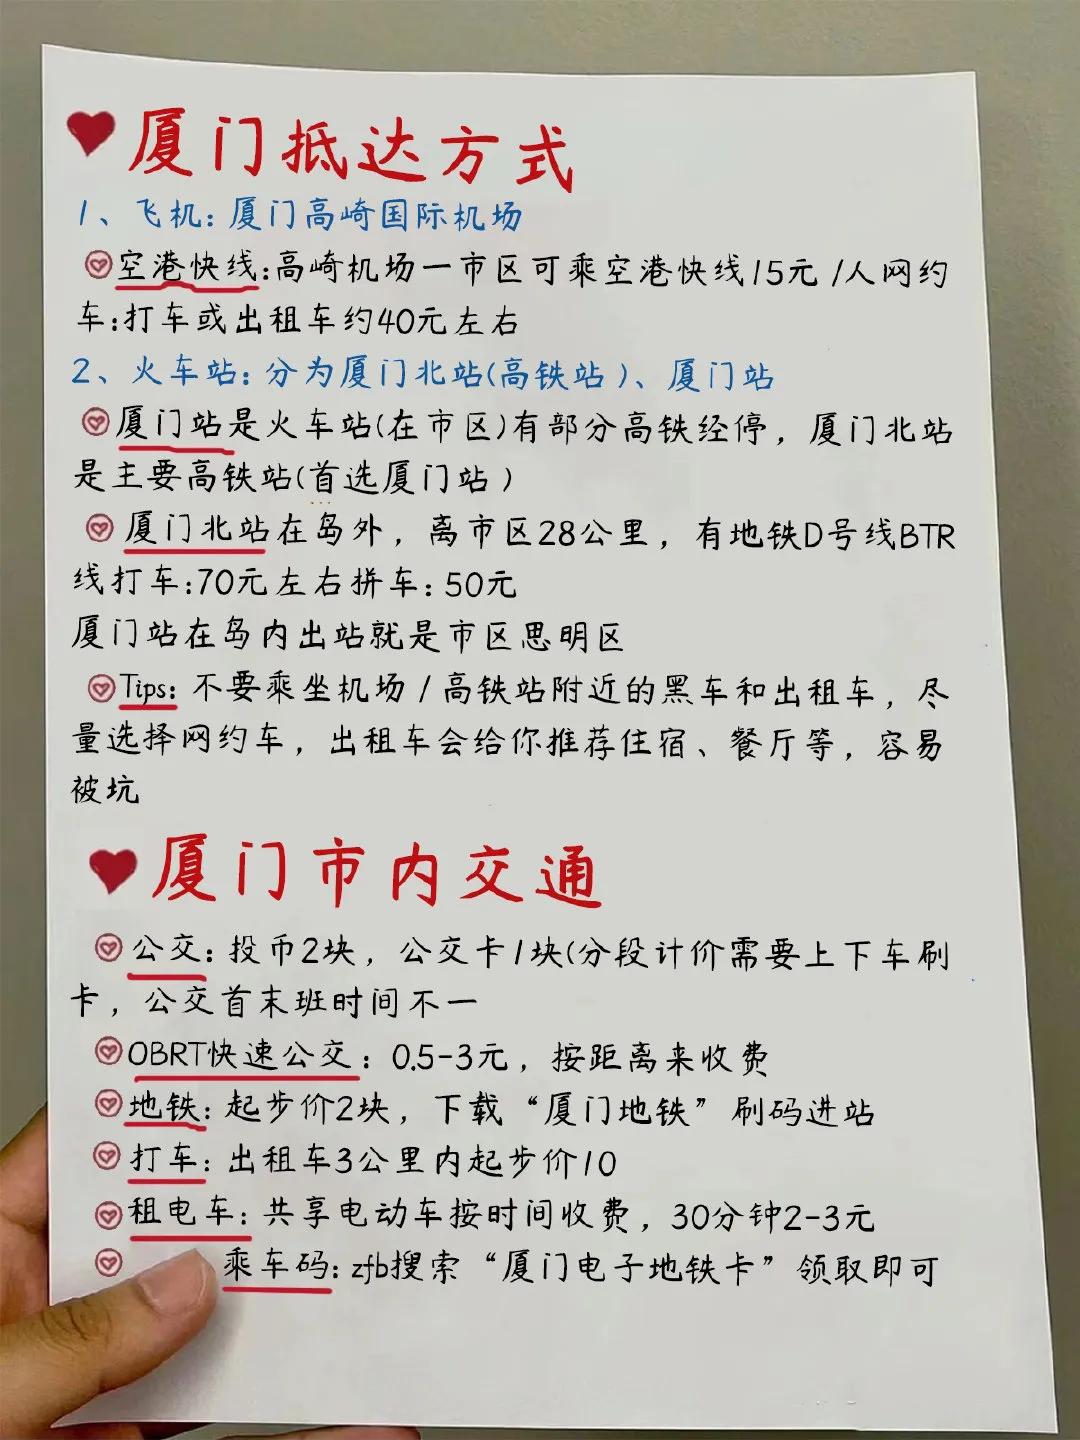 厦门抵达方式
1、飞机:厦门高崎国际机场
空港快线:高崎机场一市区可乘空港快线15元/人网约
车:打车或出租车约40元左右
2、火车站:分为厦门北站(高铁站)、厦门站
厦门站是火车站(在市区)有部分高铁经停，厦门北站
是主要高铁站(首选厦门站)
厦门北站在岛外，离市区28公里，有地铁D号线BTR
线打车:70元左右拼车:50元
厦门站在岛内出站就是市区思明区
Tips:不要乘坐机场/高铁站附近的黑车和出租车，尽
量选择网约车，出租车会给你推荐住宿、餐厅等，容易
被坑
厦门市内交通
公交:投币2块，公交卡1块(分段计价需要上下车刷
卡，公交首末班时间不一
OBRT快速公交:0.5-3元，按距离来收费
地铁:起步价2块，下载“厦门地铁”刷码进站
打车:出租车3公里内起步价10
租电车:共享电动车按时间收费，30分钟2-3元
乘车码:zfb搜索“厦门电子地铁卡”领取即可